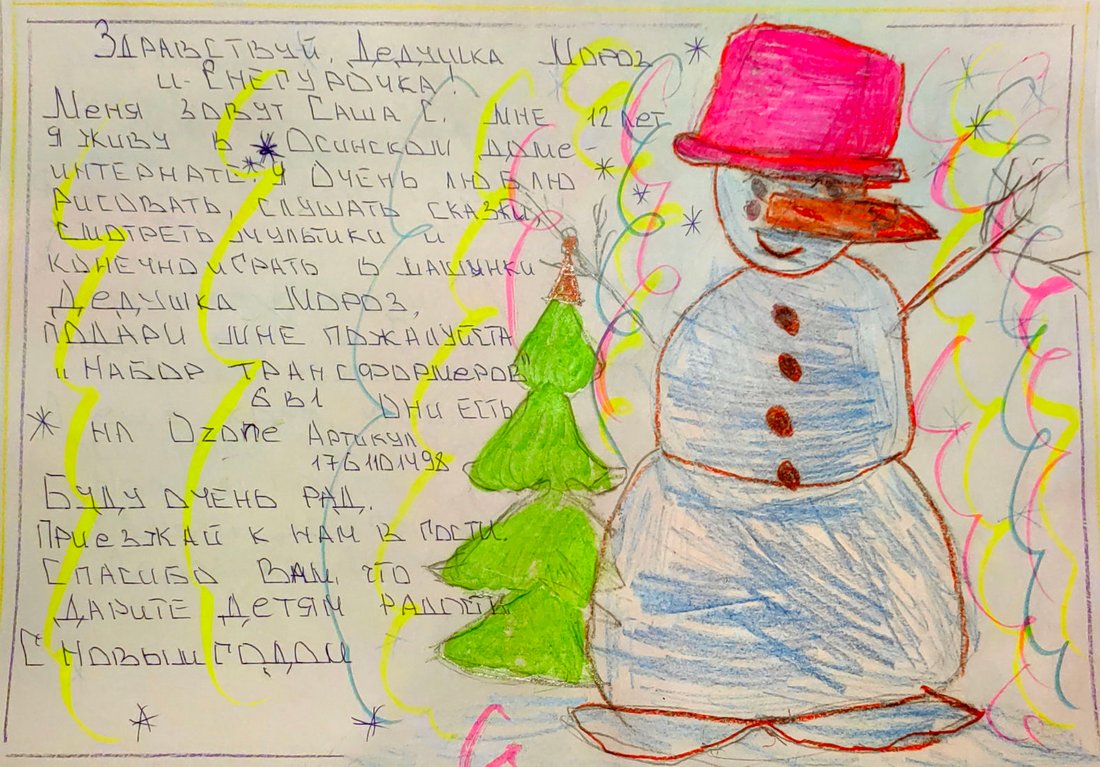 Здравствуй, Дедушка Мороз
и Снегурочка!
Меня зовут Саша С. мне 12 лет
Я живу в Осинском доме-
интернате. Я очень люблю
рисовать, слушать сказки
смотреть мультики и
конечно играть в машинки
Дедушка Мороз,
подари мне пожалуйста
"Набор трансформеров"
6 в 1 Они есть
на Ozone Артикул
1761101498
Буду очень рад.
Приезжай к нам в гости.
Спасибо Вам, что
дарите детям радость
С Новым годом